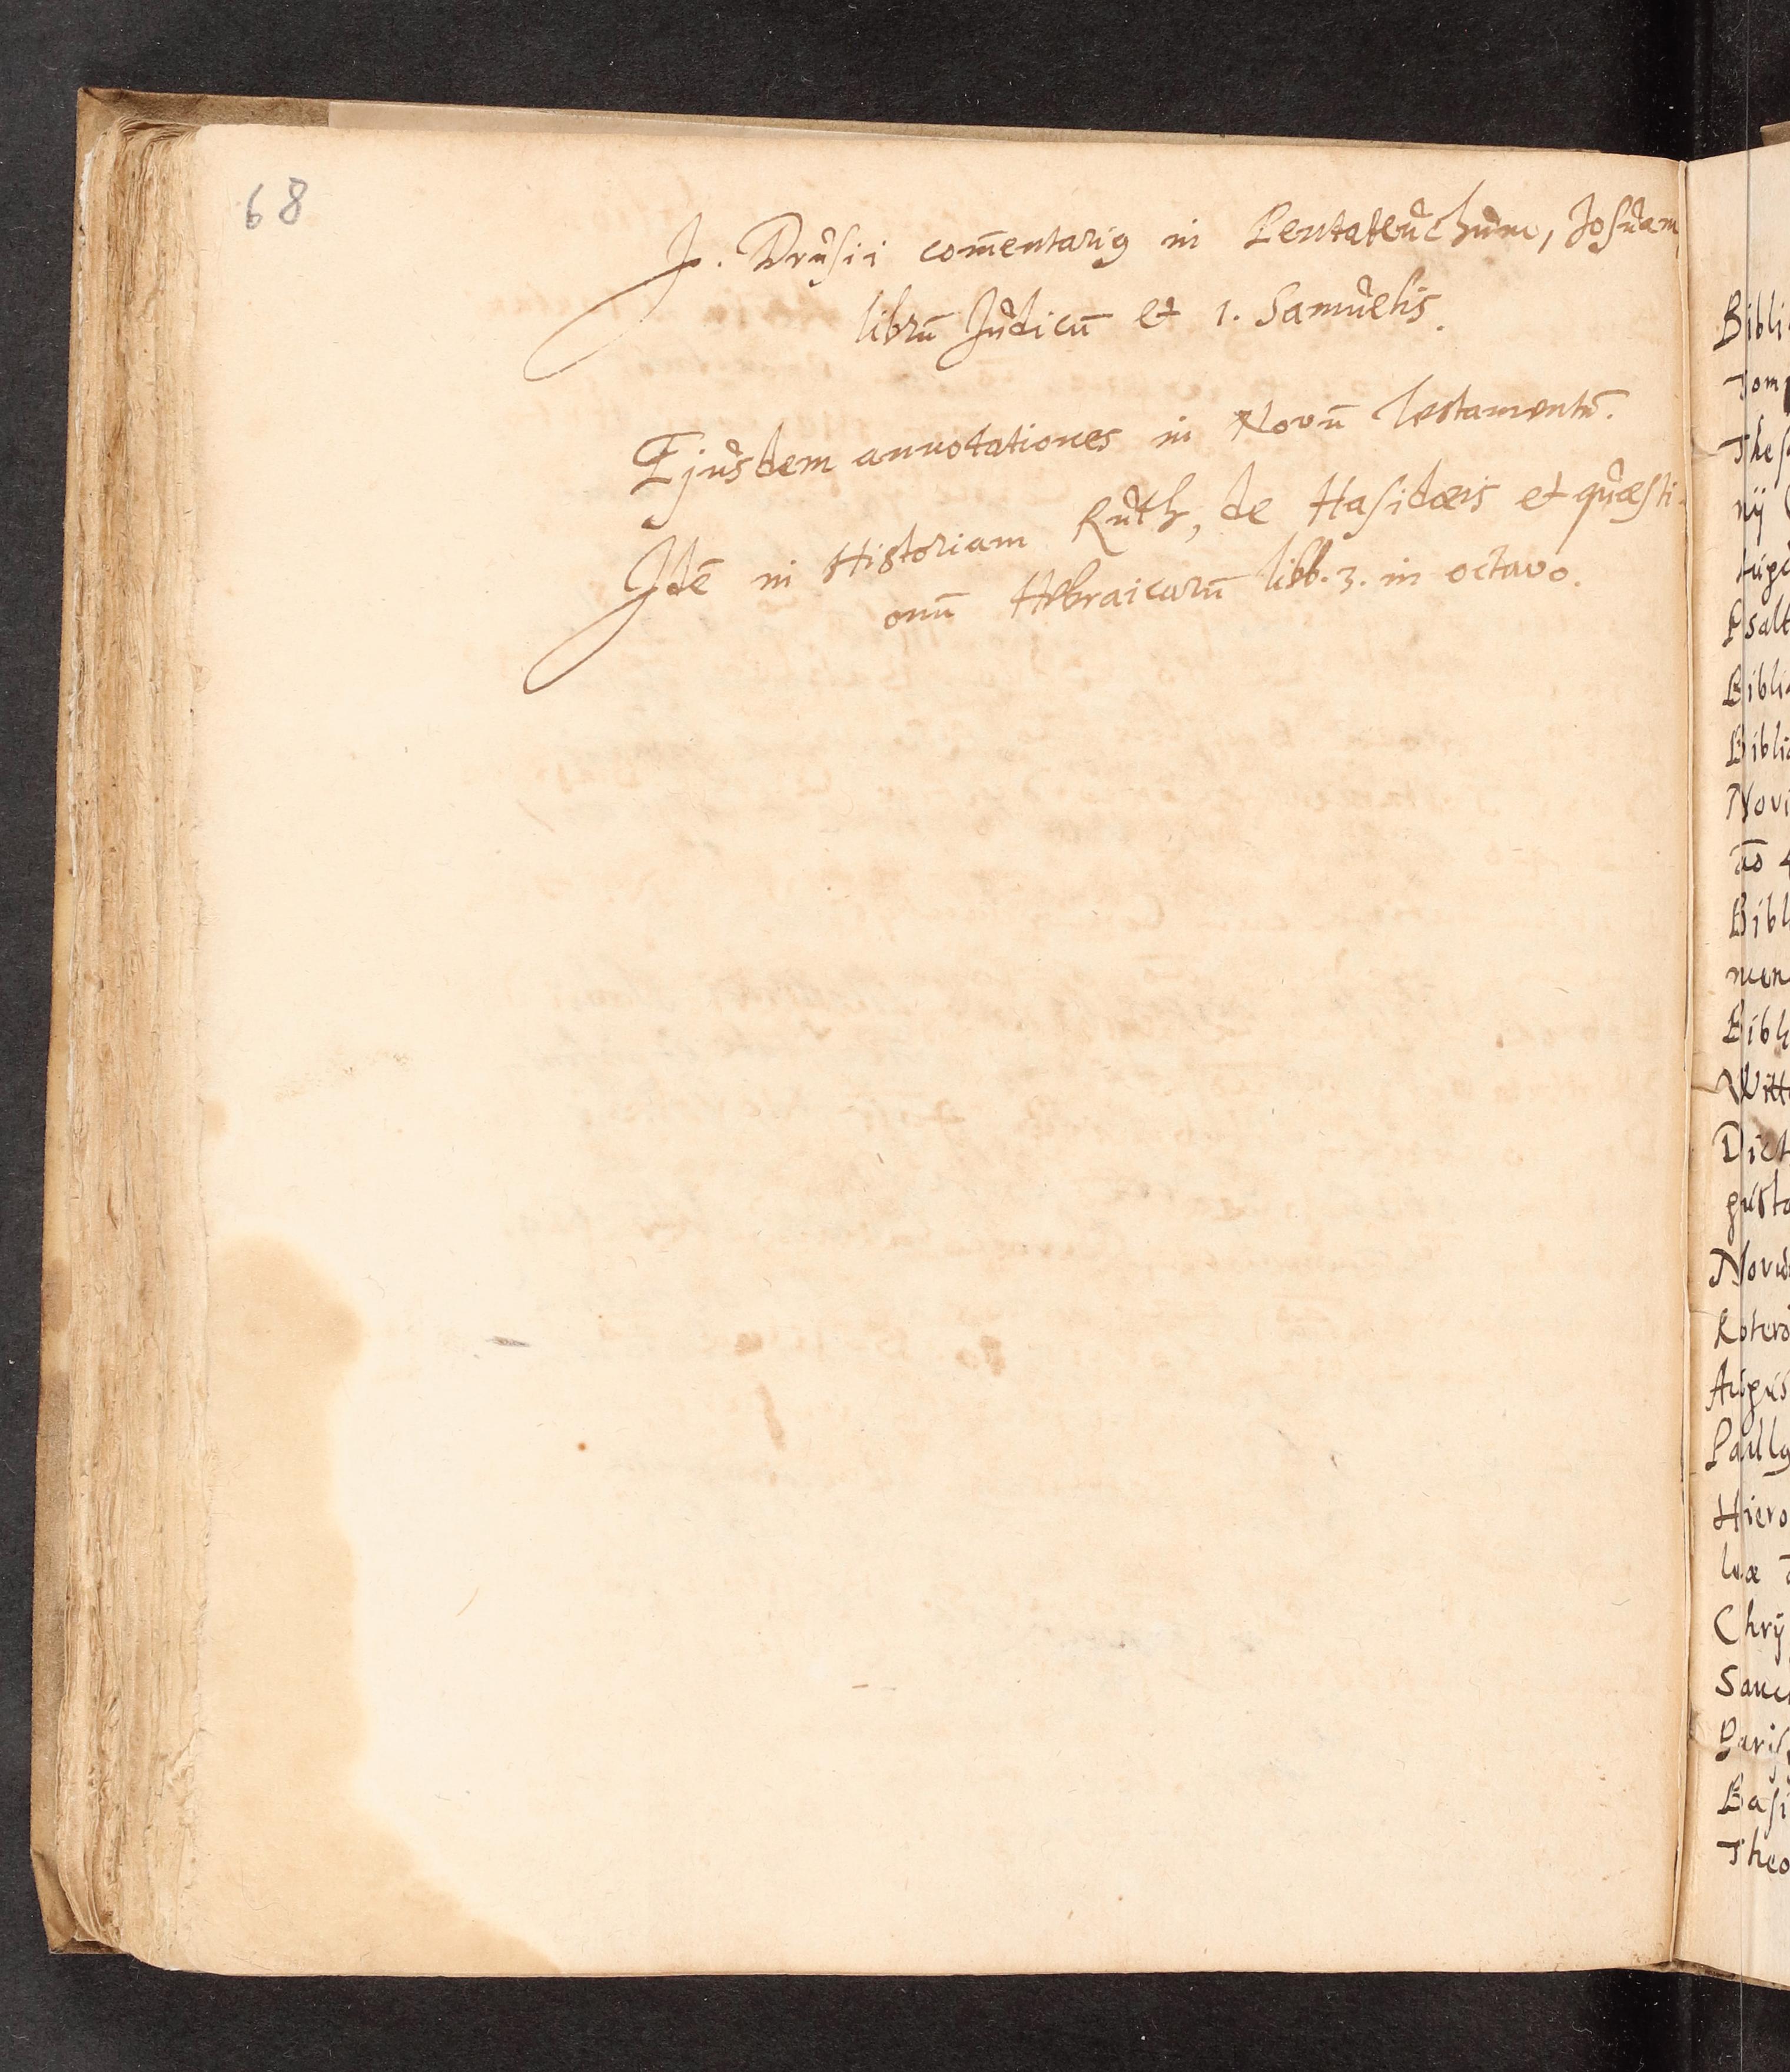 68
J. Drusii com̄entariꝯ in Pentateuchum, Josuam,
librū Judicū et 1. Samuelis.
Ejusdem annotationes in Novū Testamentū.
Idē in Historiam Ruth, de Hasidæis et quæsti-
onū Hebraicarū libb. 3. in octavo.
Bibli
Tomp
Thes
nij
Psalt
Biblia
Biblia
Novi
ao 4
Bibl
men
Bibli
Witt
Dict
gusta
Novu
Rotero
Augus
Paullꝯ
Hiero
Chrÿ
Sanc
Paris
Basi
Theo